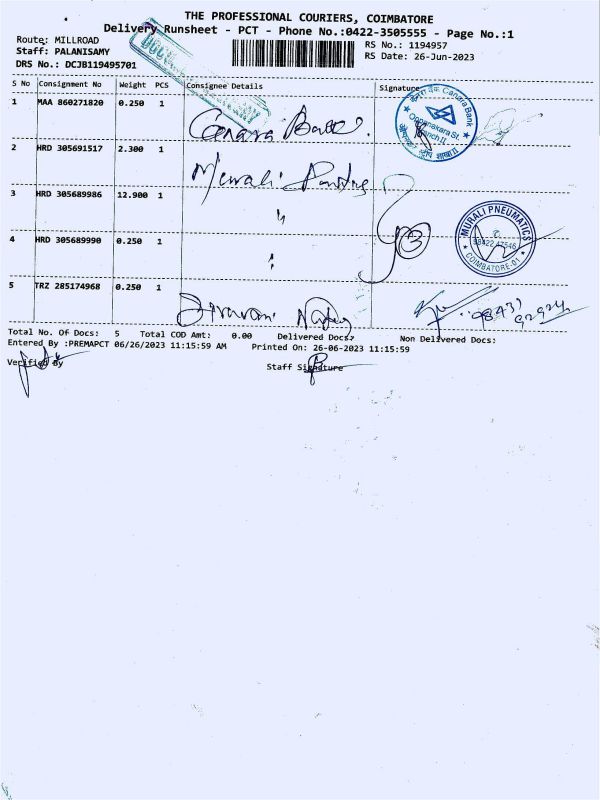 THE PROFESSIONAL COURIERS, COIMBATORE
Delivery Runsheet - PCT - Phone No.:0422-3505555 - Page No.:1
Route: MILLROAD
RS No.: 1194957
Staff: PALANISAMY
RS Date: 26-Jun-2023
DRS No.: DCJB119495701
S No Consignment No Weight PCS Consignee Details Signature
1 MAA 860271820 0.250 1 Canara Bank
केनरा बैंक Canara Bank
Oppanakara St.
Branch II
2 HRD 305691517 2.300 1 Murali
3 HRD 305689986 12.900 1 "
MURALI PNEUMATICS
98422 47546
COIMBATORE-01
4 HRD 305689990 0.250 1 "
3
5 TRZ 285174968 0.250 1
98431
92924
Total No. Of Docs: 5 Total COD Amt: 0.00 Delivered Docs: Non Delivered Docs:
Entered By :PREMAPCT 06/26/2023 11:15:59 AM Printed On: 26-06-2023 11:15:59
Verified By
Staff Signature